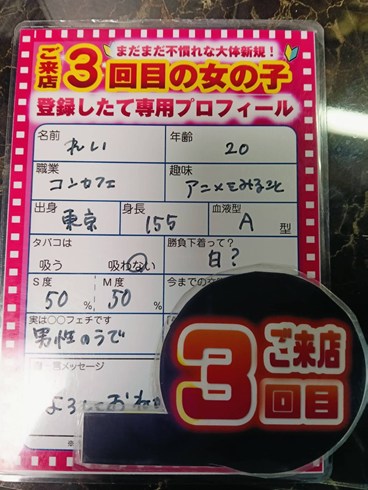 まだまだ不慣れな大体新規!
ご来店3回目の女の子
登録したて専用プロフィール
名前 れい 年齢 20
職業 コンカフェ 趣味 アニメをみること
出身 東京 身長 155 血液型 A 型
タバコは 吸う 吸わない 勝負下着って? 白?
S度 50 % M度 50 % 今までの
実は○○フェチです
男性のうで
メッセージ
ご来店
3回目